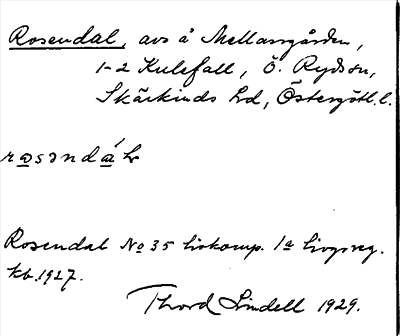 Rosendal, avs å Mellangården,
1-2 Kulefall, Ö. Ryds sn,
Skärkinds hd, Östergötl. l.
Rosendal No 35 livkomp. 1a livgreg.
kb. 1927.
Thord Lindell 1929.